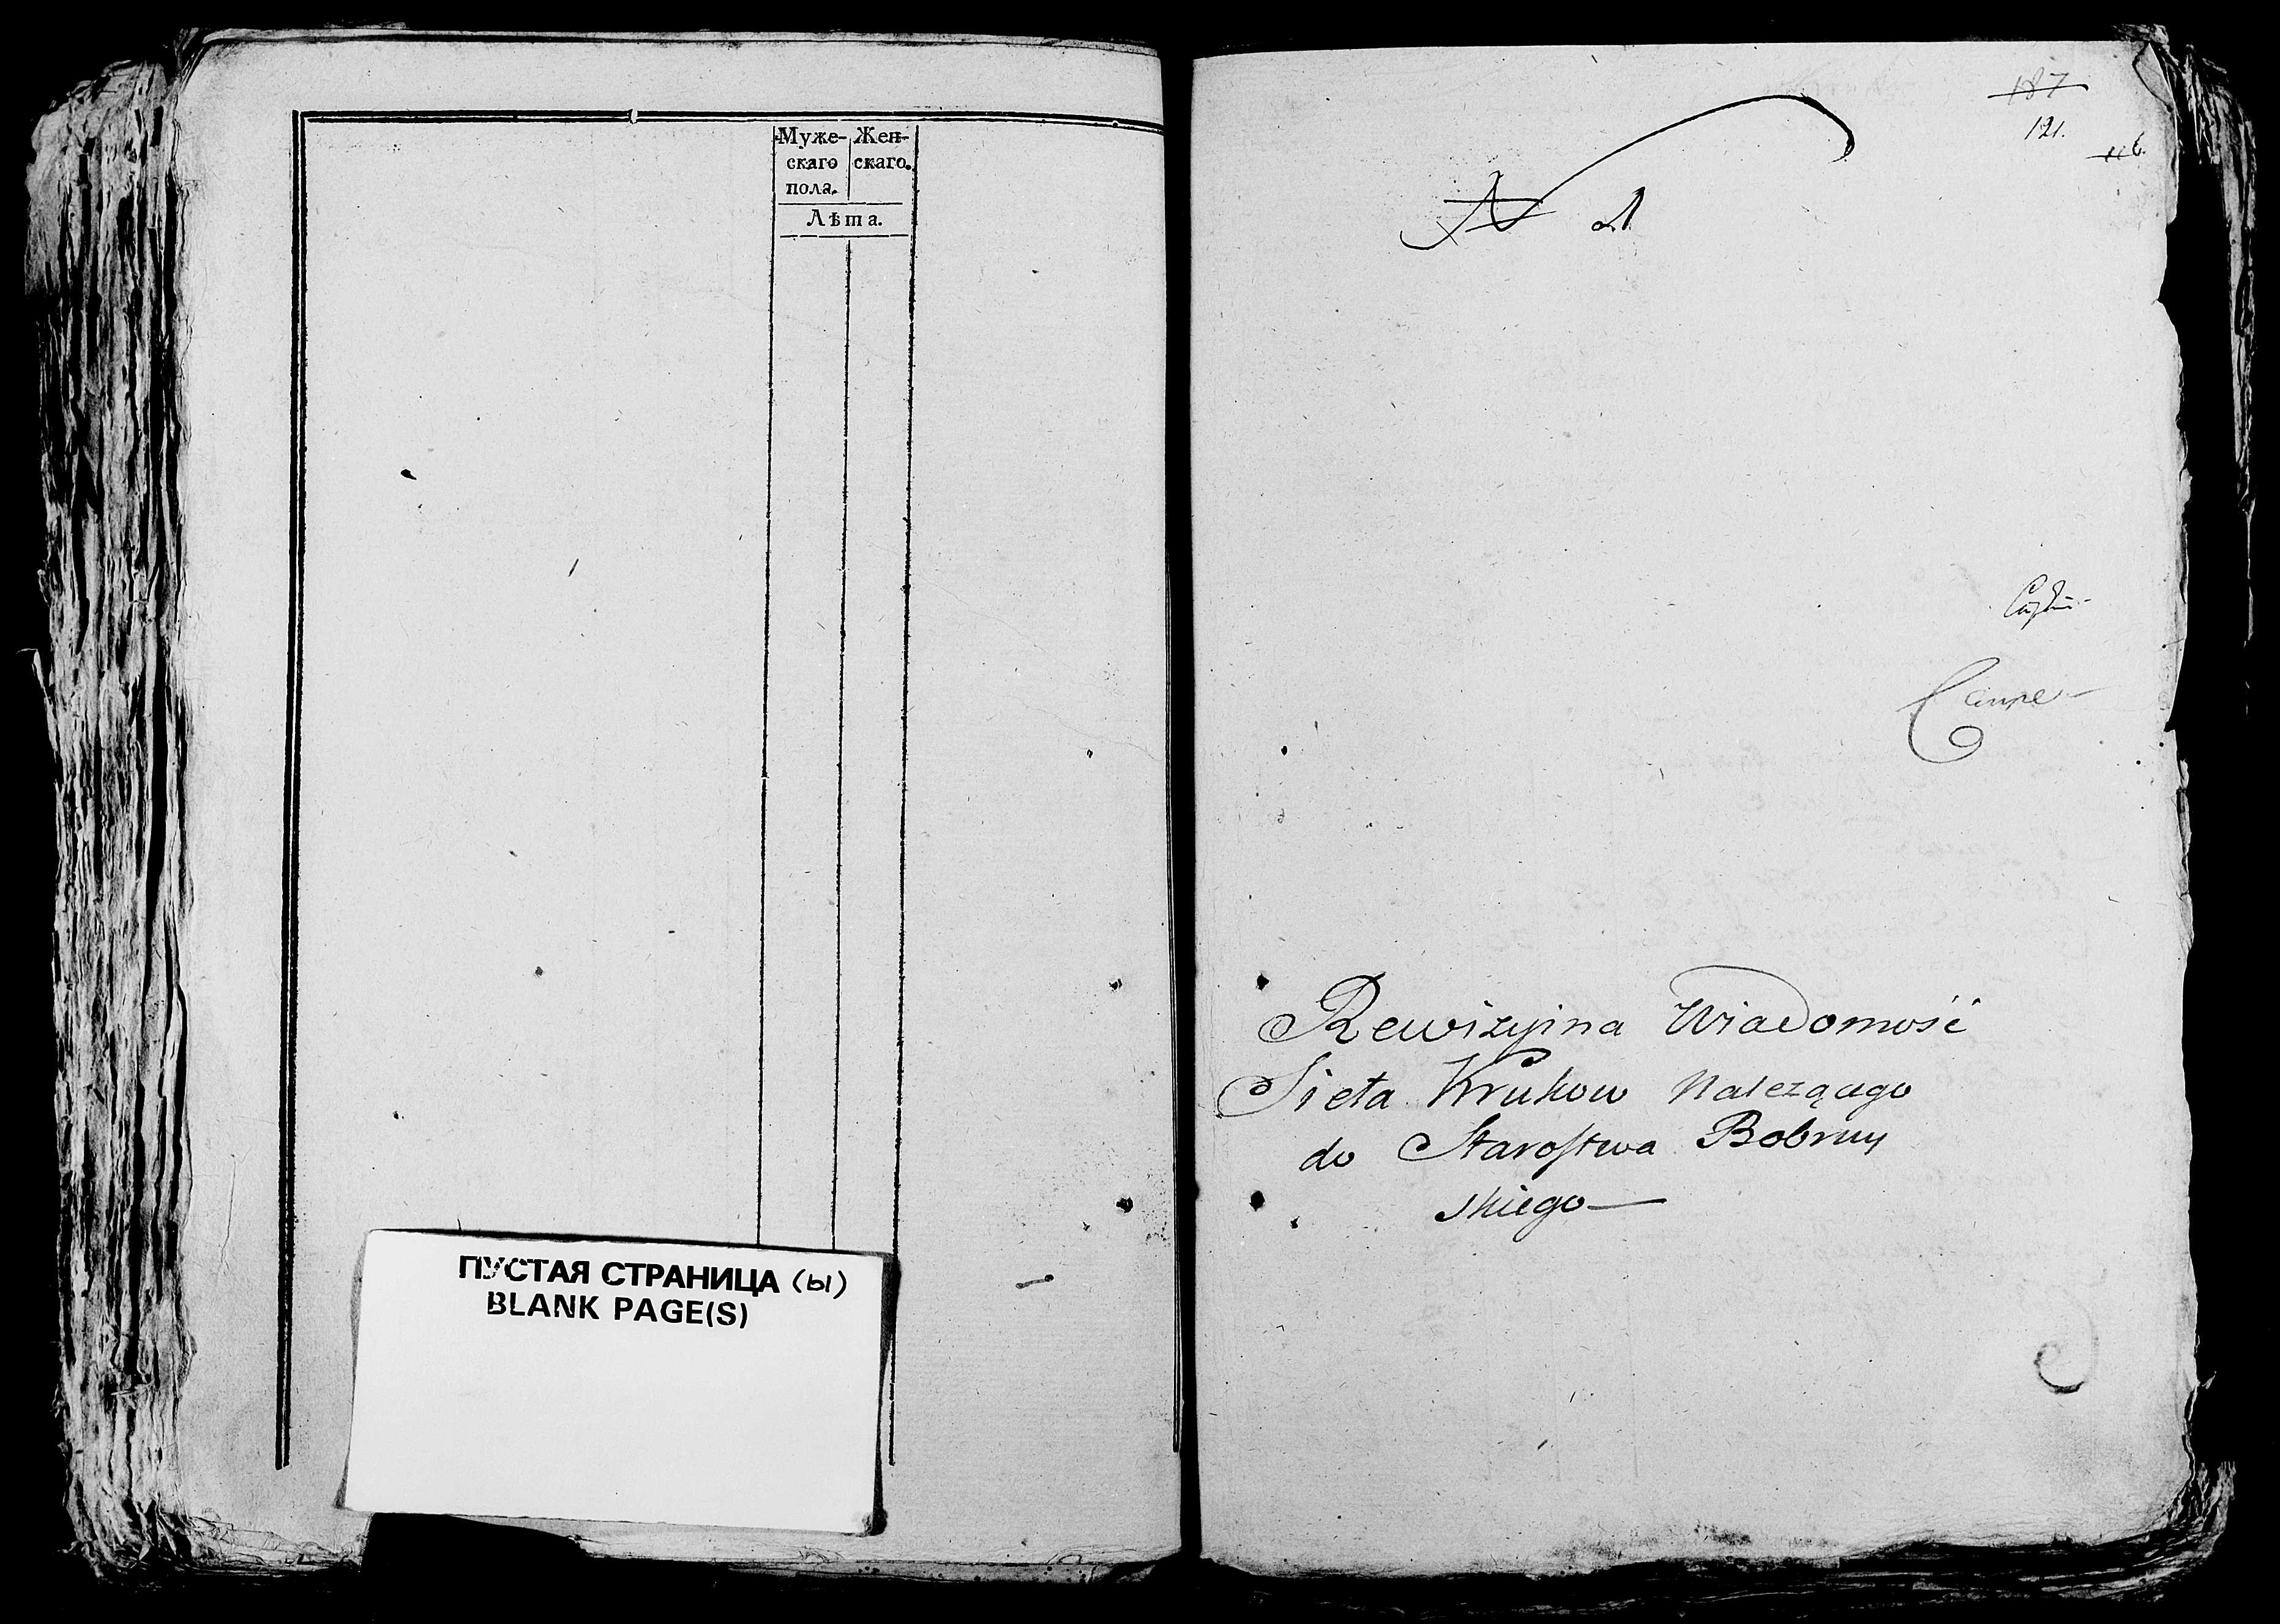 Муже- Жен-
скаго скаго.
пола.
Лѣта.
ПУСТАЯ СТРАНИЦА (ы)
BLANK PAGE(S)
187
121.
116.
N 21
Rewizyina Wiadomość
Sieła Krukow Nalezącego
do Starostwa Bobruy
skiego